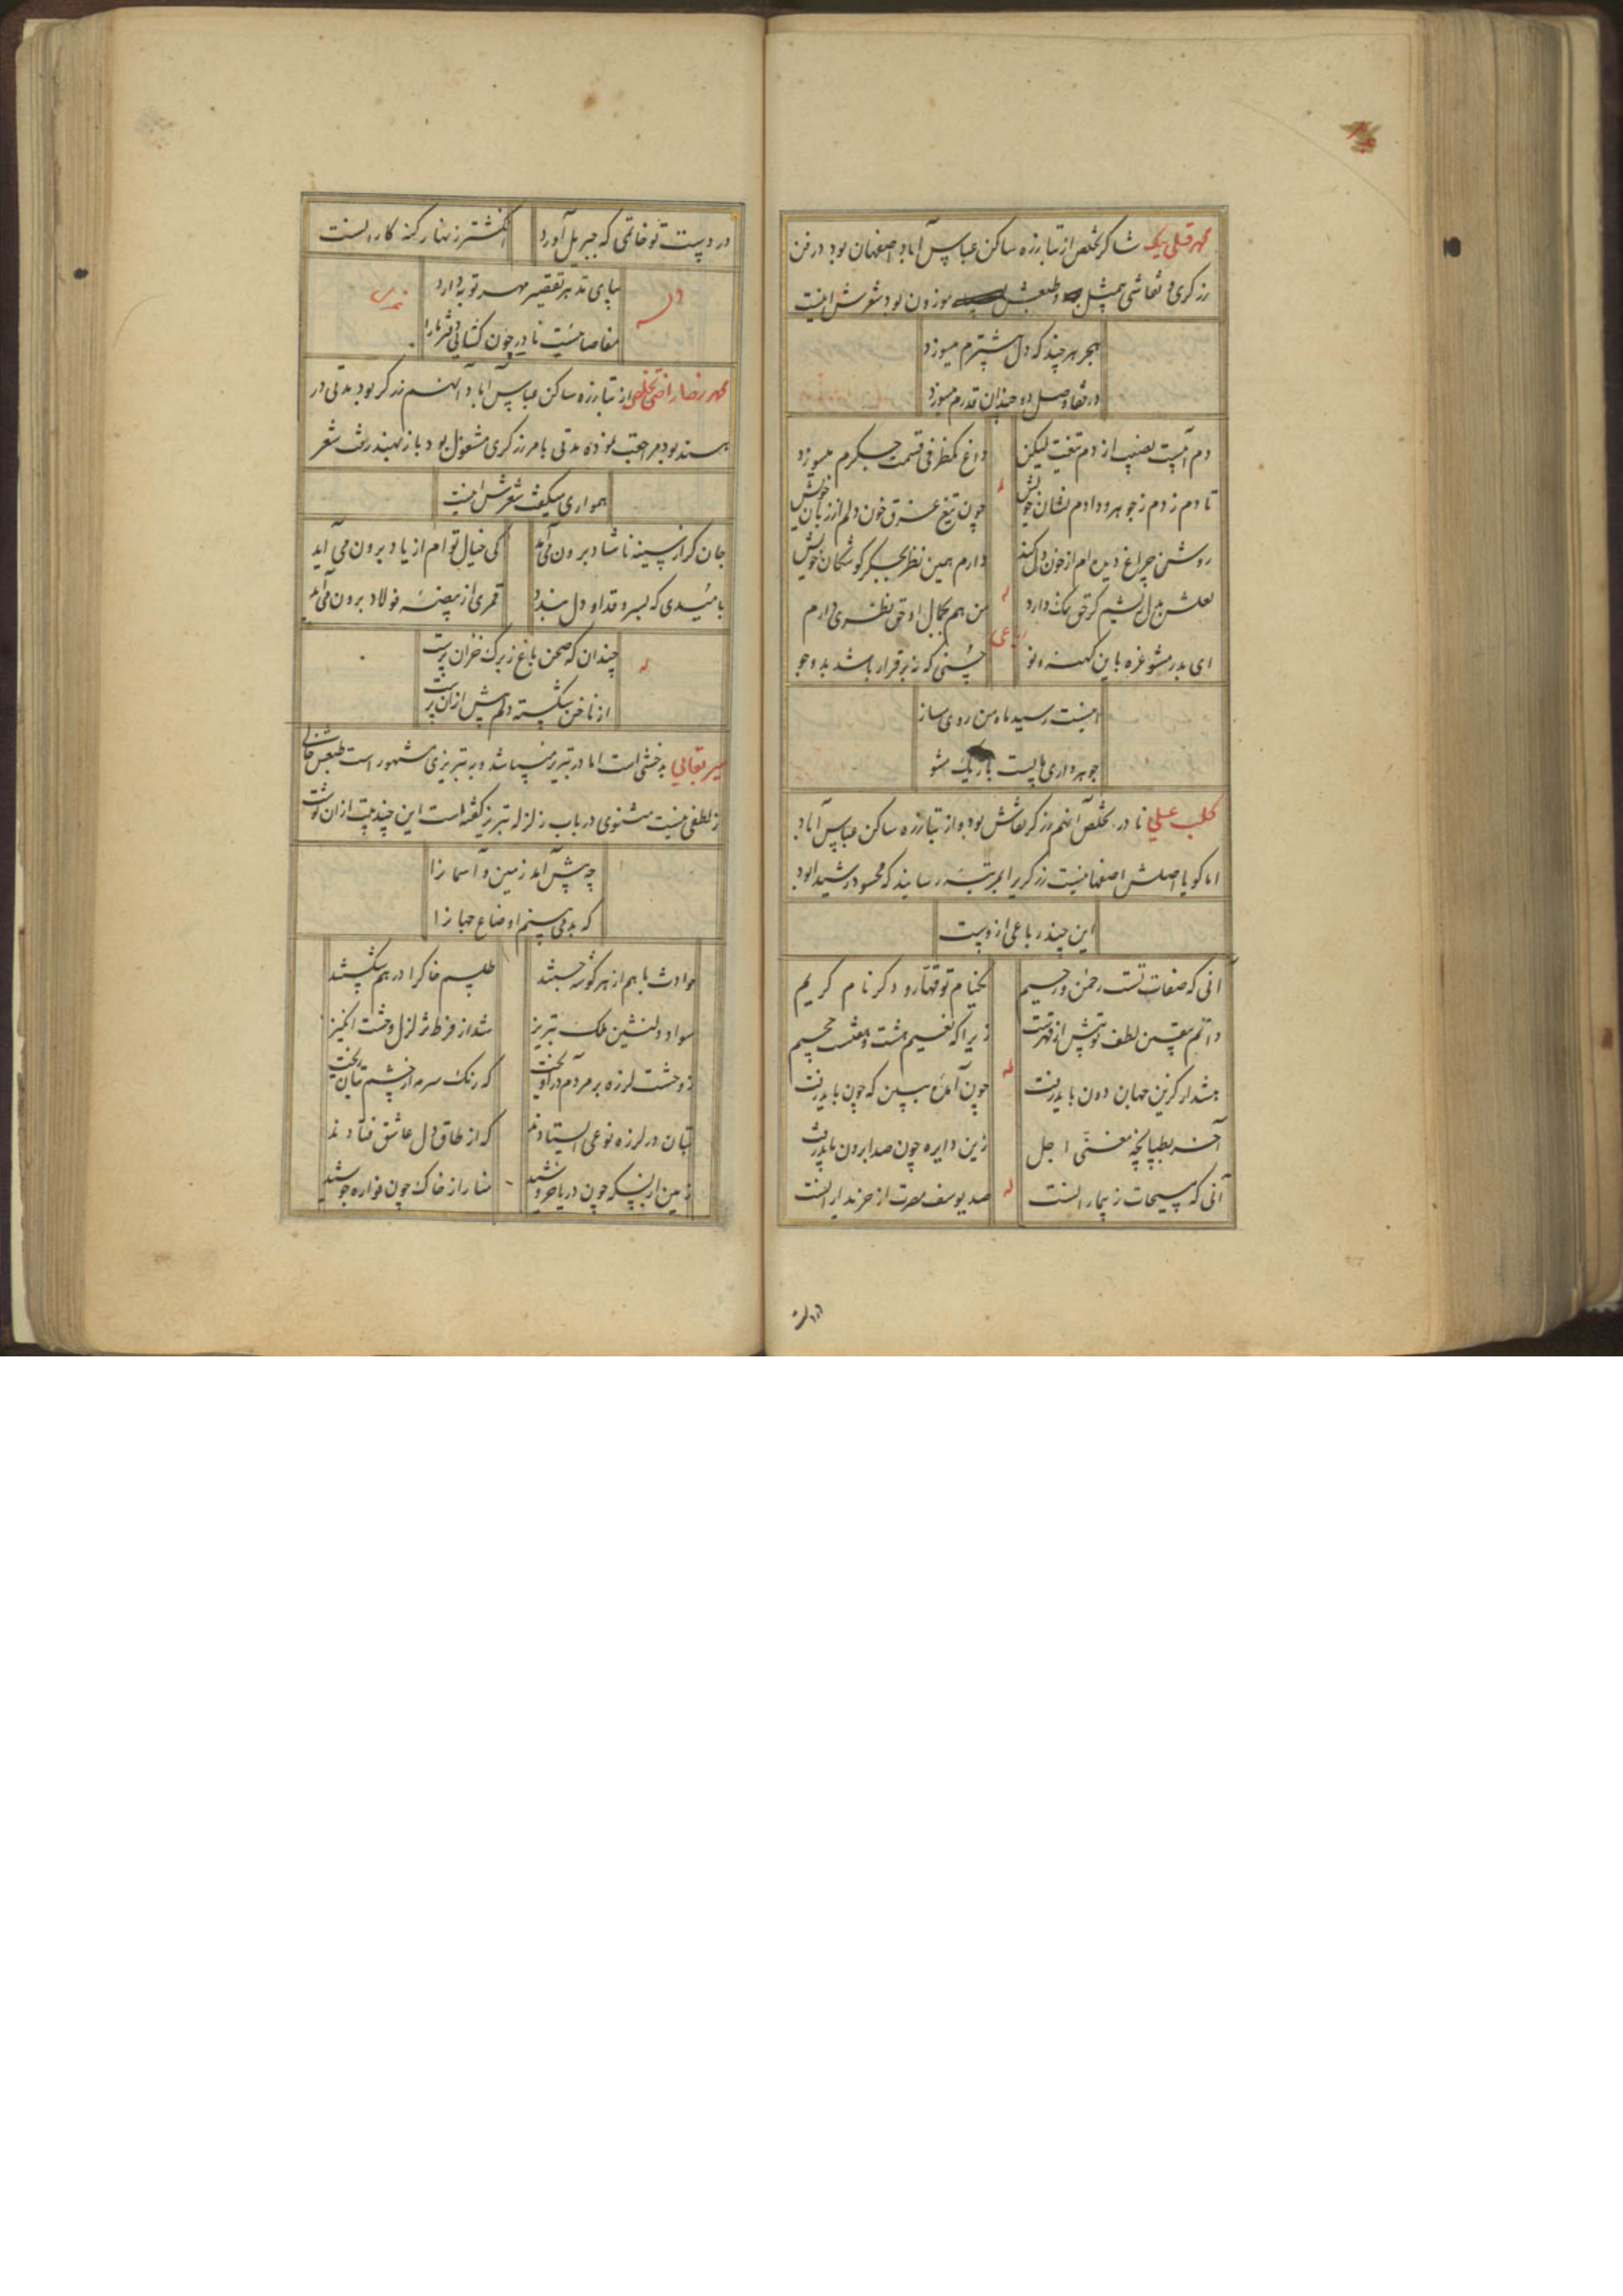 محمد قلی بیک شاکر تخلص از تبارزه ساکن عباس آباد اصفهان بود در فن
زرکری و نقاشی بیمثل و طبعش موزون بود شعرش اینست
بهجر هر چند که دل بیشترم میسوزد
در تف وصل دو چندان قدرم میسوزد
دم آبیست نصیب از دم تیغت لیکن داغ کم ظرفی قسمت جکرم میسوزد
تا دم زدم ز جوهر و دادم نشان خویش چون تیغ غرق خون دلم از زبان خویش
روشن چراغ دیده ام از خون دل کنند دارم همین نظر بجکر کوشکان خویش
لعلش بدل ریشم کر حق نمک دارد من هم بجمال او حق نظری دارم
رباعی
ای بدر مشو غره باین کهنه و نو حسنی که نه برقرار باشد بدو جو
اینست رسید ماه من روی بساز
جو هر داری هاست باریک شو
کلب علی نادر تخلص آنهم زرکر نقاش بود و از تبارزه ساکن عباس آباد
اما کویا اصلش اصفهانیست زرکری را بمرتبه رسانید که محسود رشیدا بود
این چند رباعی ازوست
آنی که صفات تست رحمن و رحیم یکنام تو قهار و دکر نام کریم
دانم بیقین لطف تو بیش از قهرست زیرا که نعیم هشت و هفتست جحیم
له
هشدار کزین جهان دون باید رفت چون آمدهٔ ببین که چون باید رفت
آخر بطپانچه مغنی اجل زین دایره چون صدا برون باید رفت
له
آنی که مسیحات ز بیمارانست صد یوسف مصرت از خریدارانست
در دست تو خاتمی که جبریل آورد انکشتر زنهار کنه کارانست
وله
بپای تو هر تقصیر مهر توبه دارد
مفاصا نیست نادر چون کشائی دفتر ما را
محمد رضا راضی تخلص از تبارزه ساکن عباس آباد آنهم زرکر بود مدتی در
هند بود مراجعت نموده مدتی بامر زرکری مشغول بود باز بهند رفت شعر
همواری میکفت شعرش اینست
جان کر از سینه ناشاد برون می آید کی خیال توام از یاد برون می آید
نامیدی که بسرو قد او دل بندد قمری از بیضه فولاد برون می آید
له
چندان که صحن باغ ز برک خزان پرست
از ناخن شکسته دلم بیش از ان پرست
میر بقایی بدخشی است اما در تبریز میباشد و به تبریزی مشهور است طبعش خالی
از لطفی نیست مثنوی در باب زلزله تبریز کفته است این چند بیت از ان نوشت
چه پیش آمد زمین و آسمانرا
که بد می بینم اوضاع جهانرا
حوادث باهم از هر کوشه جستند طلسم خاکرا در هم شکستند
سواد دلنشین ملک تبریز شد از فرط تزلزل وحشت انکیز
ز وحشت لرزه بر مردم در آویخت که رنک سرمه از چشم بتان ریخت
بتان در لرزه نوعی ایستادند که از طاق دل عاشق فتادند
زمین از بسکه چون دریا خروشید منار از خاک چون فواره جوشید